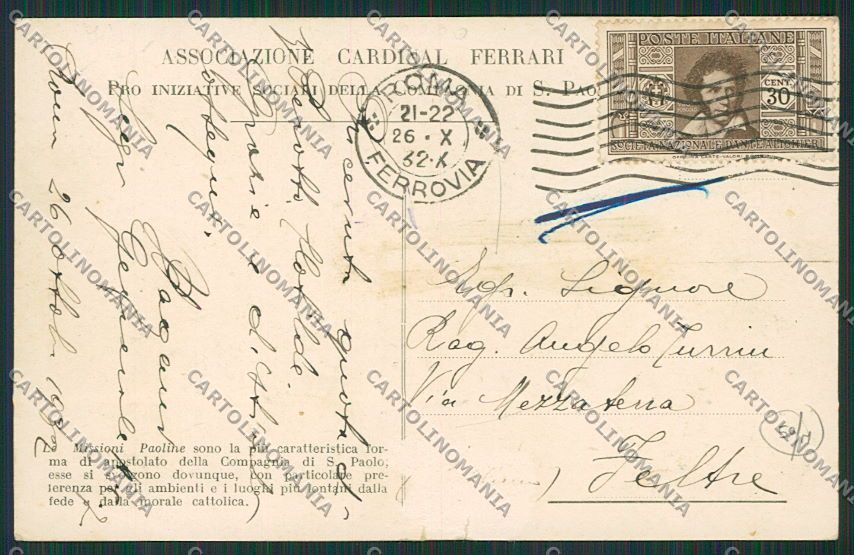 ASSOCIAZIONE CARDINAL FERRARI
PRO INIZIATIVE SOCIALI DELLA COMPAGNIA DI S. PAO
POSTE ITALIANE
CENT.
30
SOCIETÀ NAZIONALE DANTE ALIGHIERI
ROMA
21-22
26 · X
32·X
FERROVIA
Ricevuta quota
Grazie e
ossequi.
Roma 26 ottob. 1932
Egr. Signore
Rag. Angelo Turrin
Via Mezzaterra
Feltre
Le Missioni Paoline sono la più caratteristica for-
ma di apostolato della Compagnia di S. Paolo;
esse si svolgono dovunque, con particolare pre-
ferenza per gli ambienti e i luoghi più lontani dalla
fede e dalla morale cattolica.
CARTOLINOMANIA